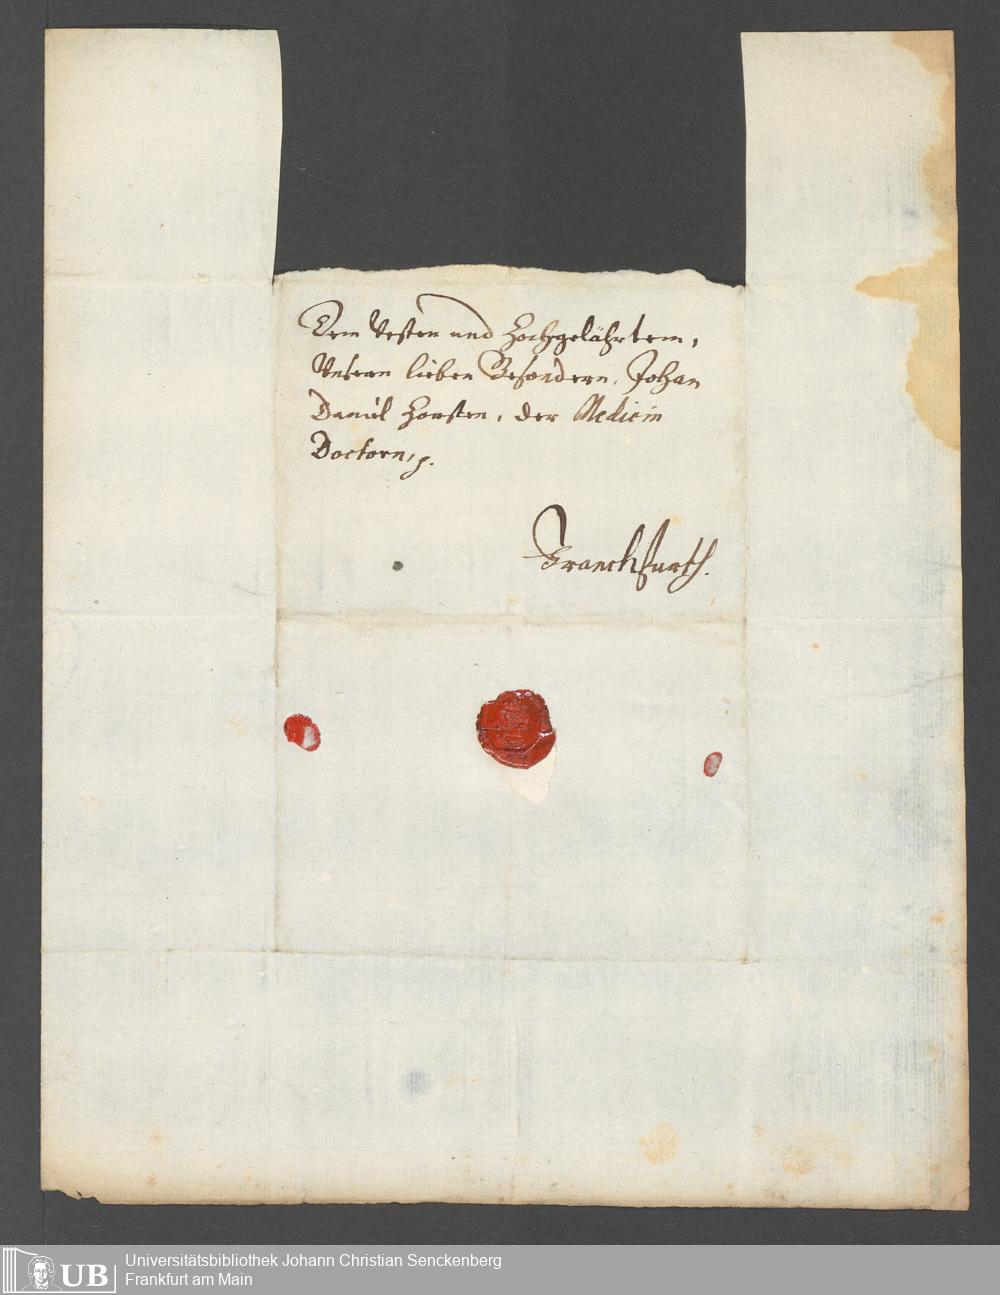 Dem Vesten und Hochgelährtem,
Unserm lieben Besondern, Johan
Daniel Horsten, der Medicin
Doctorn, p.
Franckfurth.
UB
Universitätsbibliothek Johann Christian Senckenberg
Frankfurt am Main